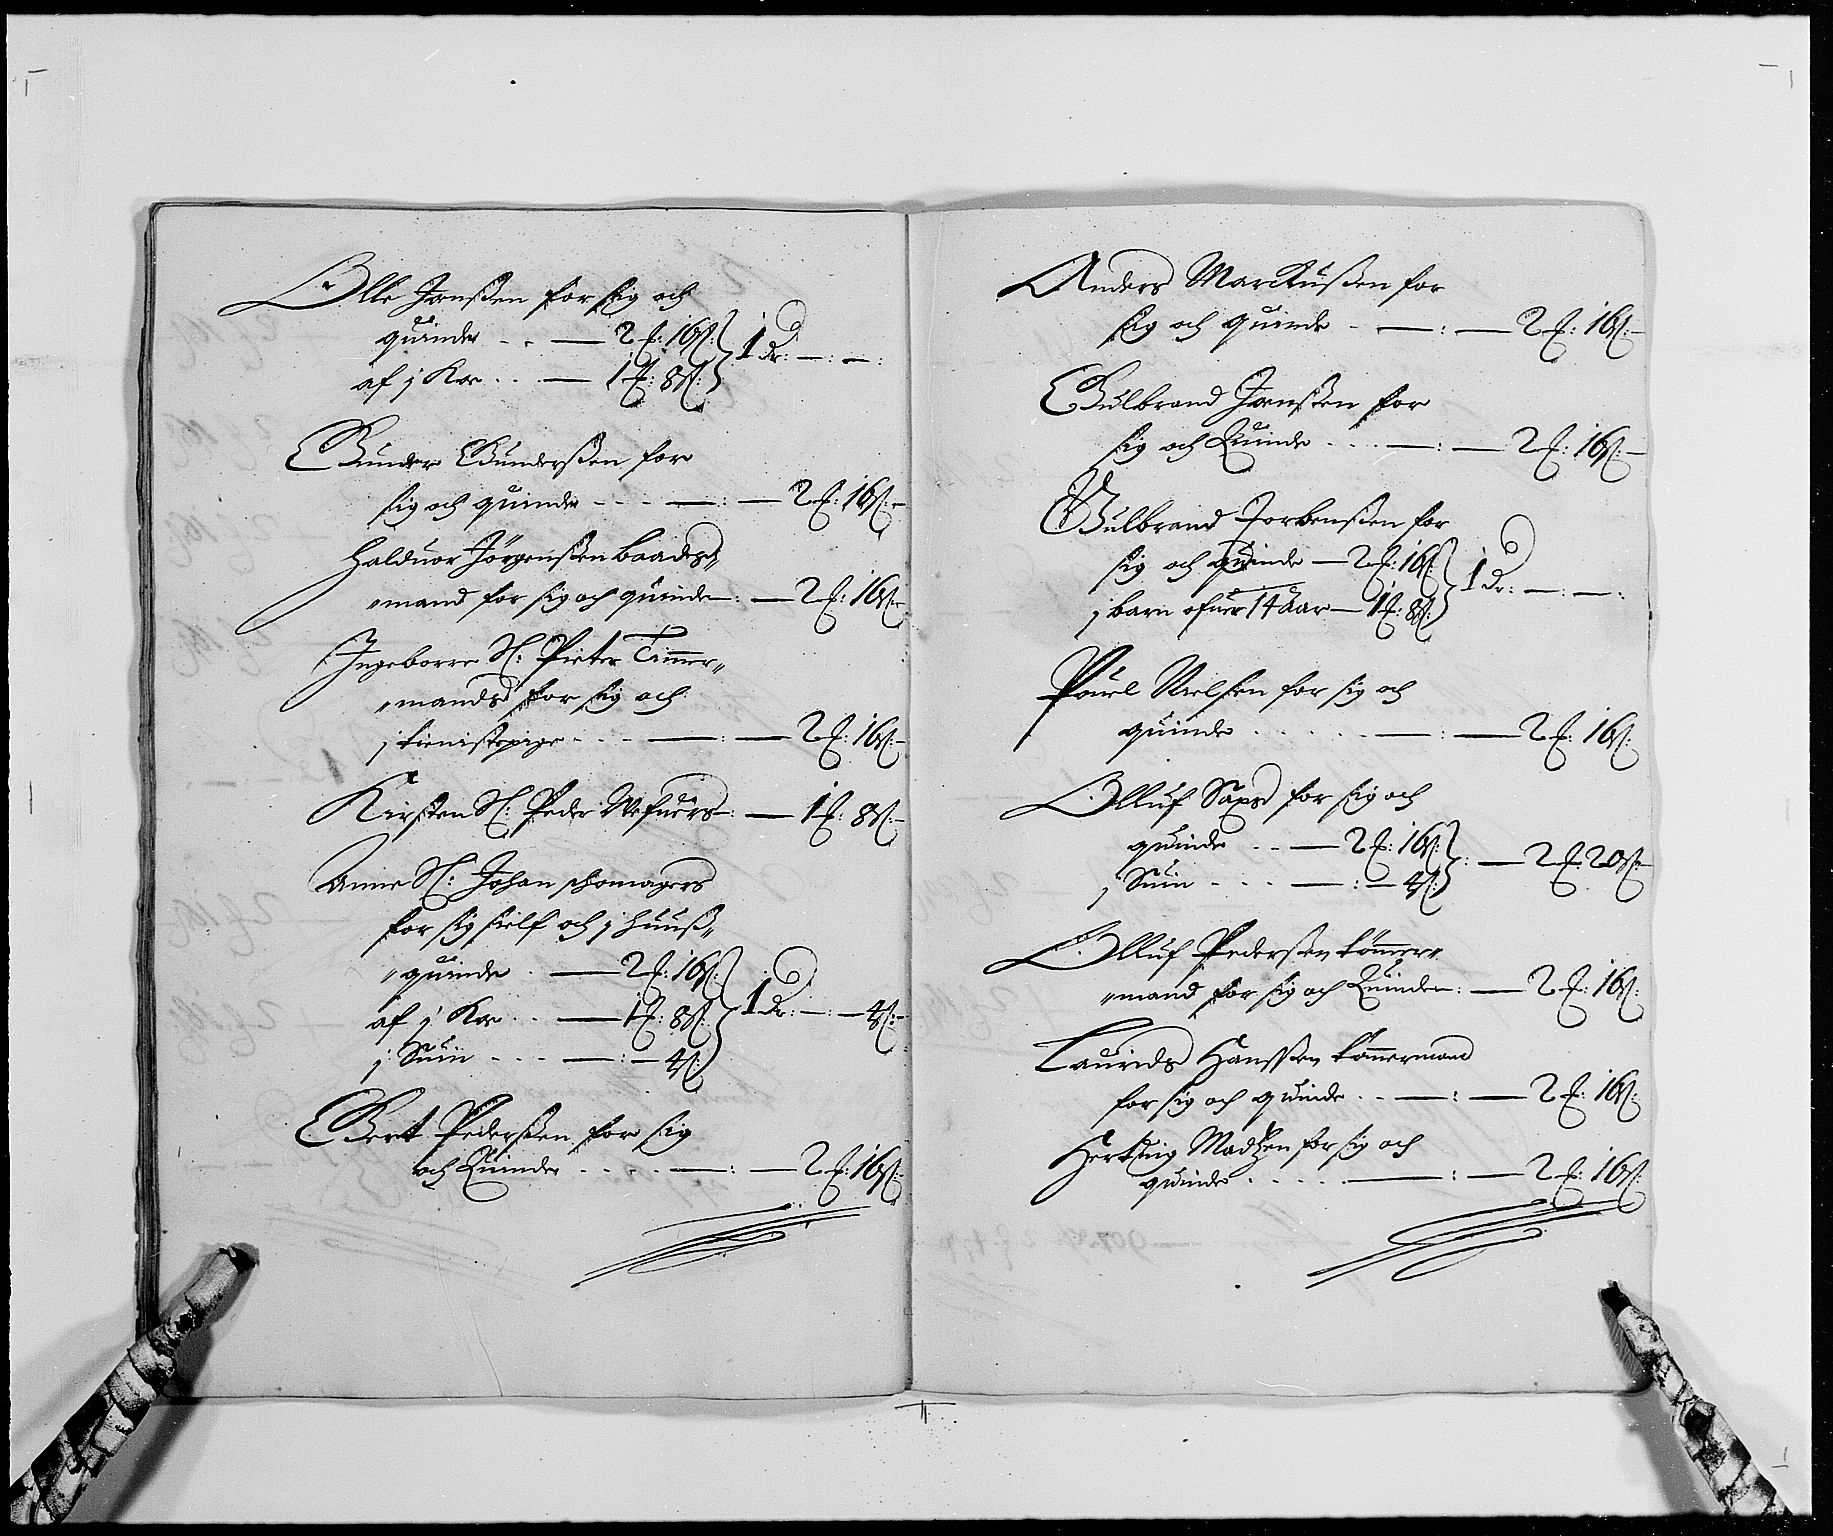 Olle Jonßen for sig och
quinde - - — 2 ℔: 16 ß:
1 Dr: — : — :
af j Koe . . . — 1 ℔: 8 ß:
Gunder Gunderßen for
sig och quinde - - - — : — 2 ℔: 16 ß: —
Halduor Jörgenßen baads„
„mand for sig och quinde — : — 2 ℔: 16 ß: —
Ingeborre Sl: Pieter Timmer„
„mands for sig och
j tienistepige - - - — : — 2 ℔: 16 ß: —
Kirsten Sl: Peder Wefuers — : — 1 ℔: 8 ß: —
Anne Sl: Johan schomagers
for sig sielf och j huuß„
„quinde . — 2 ℔: 16 ß:
af j Koe . . — 1 ℔: 8 ß:
1 Dr: — : — 4 ß: —
j Suin - - - — : — 4 ß:
Gert Pederßen for sig
och Quinde - - - - — : — 2 ℔: 16 ß: —
Anders Markußen for
sig och quinde - — : — 2 ℔: 16 ß: —
Gulbrand Jonßen for
sig och Quinde . . . — : — 2 ℔: 16 ß: —
Gulbrand Torbenßen for
sig och quinde — 2 ℔: 16 ß:
1 Dr: — : — :
j barn ofuer 14 aar — 1 ℔: 8 ß:
Pouel Nielsen for sig och
quinde . . . . . . — : — 2 ℔: 16 ß:
Olluf for sig och
quinde . . — 2 ℔: 16 ß:
: — 2 ℔: 20 ß: —
j Suin - - - — : — 4 ß:
Olluf Pederßen tömmer„
„mand for sig och Quinde — : — 2 ℔: 16 ß:
Laurids Hanssen tömmermand
for sig och quinde . . — : — 2 ℔: 16 ß:
Hertuig Madtzen for sig och
quinde . . . . . — : — 2 ℔: 16 ß: